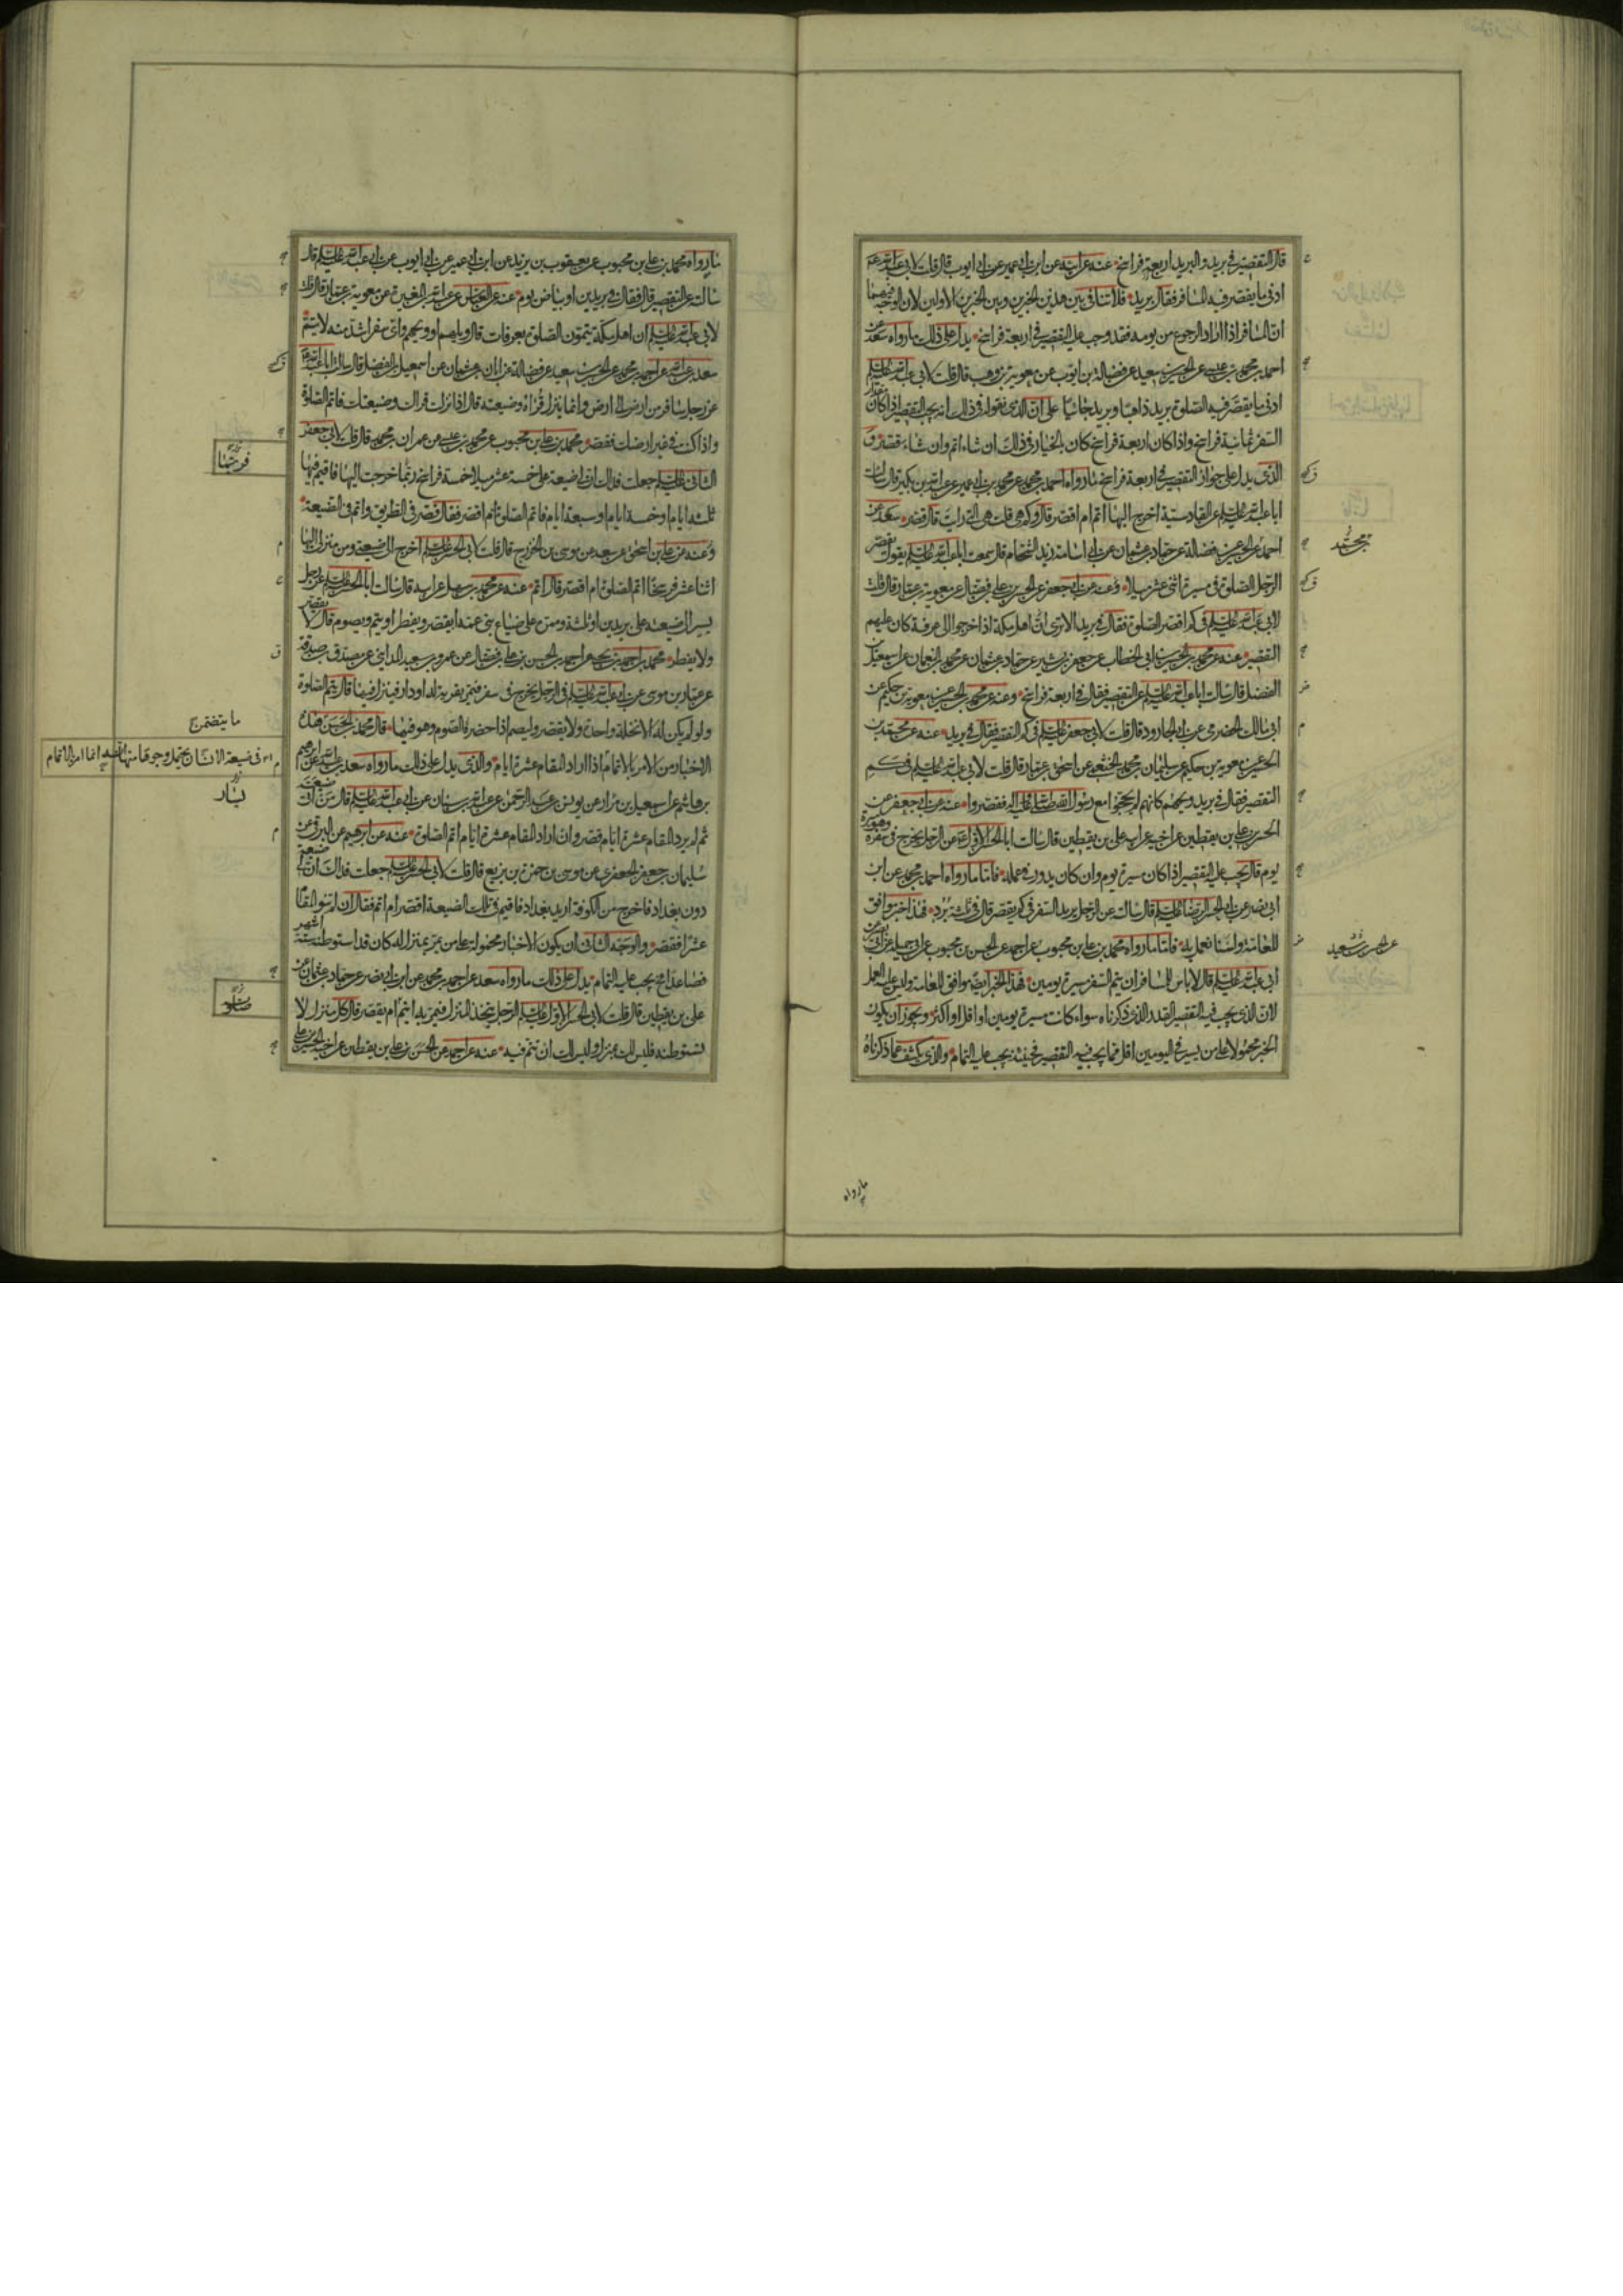 قال التقصير في بريد والبريد اربعة فراسخ عنه عن ابيه عن ابن ابي عمير عن ابي ايوب قال قلت لابي عبد الله ع
ادنى ما يقصر فيه المسافر فقال بريد فلا تنافي بين هذين الخبرين وبين الخبرين الاولين لان الوجه فيهما
ان المسافر اذا اراد الرجوع من يومه فقد وجب عليه التقصير في اربعة فراسخ يدل على ذلك ما رواه سعد عن
احمد بن محمد بن عيسى عن الحسين بن سعيد عن فضالة بن ايوب عن معوية بن وهب قال قلت لابي عبد الله عليه السلم
ادنى ما يقصر فيه الصلوة بريد ذاهبا وبريد جائيا على ان الذي نقوله في ذلك انه يجب التقصير اذا كان مقدار
السفر ثمانية فراسخ واذا كان اربعة فراسخ كان بالخيار في ذلك ان شاء اتم وان شاء قصر و
الذي يدل على جواز التقصير في اربعة فراسخ ما رواه احمد بن محمد عن محمد بن ابي عمير عن عبد الله بن بكير قال سالت
ابا عبد الله عليه السلم عن القادسية اخرج اليها اتم ام اقصر قال وكم هي قلت هي التي رايت قال قصر سعد عن
احمد عن الحسين عن فضالة عن حماد بن عثمان عن ابي اسامة زيد الشحام قال سمعت ابا عبد الله عليه السلم يقول يقصر
الرجل الصلوة في مسيرة اثنى عشر ميلا وعنه عن ابي جعفر عن الحسن بن علي بن فضال عن معوية بن عمار قال قلت
لابي عبد الله عليه السلم في كم اقصر الصلوة فقال في بريد الا ترى ان اهل مكة اذا خرجوا الى عرفة كان عليهم
التقصير عنه عن محمد بن الحسين بن ابي الخطاب عن جعفر بن بشير عن حماد بن عثمان عن محمد بن النعمان عن اسمعيل بن
الفضل قال سالت ابا عبد الله عليه السلم عن التقصير فقال في اربعة فراسخ وعنه عن محمد بن الحسين عن معوية بن حكيم عن
ابي مالك الحضرمي عن ابي الجارود قال قلت لابي جعفر عليه السلم في كم التقصير فقال في بريد عنه عن محمد بن
الحسين عن معوية بن حكيم عن سليمان بن محمد الخثعمي عن اسحق بن عمار قال قلت لابي عبد الله عليه السلم في كم
التقصير فقال في بريد ويحهم كانهم لم يحجوا مع رسول الله صلى الله عليه واله فقصروا عنه عن ابي جعفر عن
الحسن بن علي بن يقطين عن اخيه عن ابيه علي بن يقطين قال سالت ابا الحسن الاول ع عن الرجل يخرج في سفره وهو مسيرة
يوم قال يجب عليه التقصير اذا كان مسيرة يوم وان كان يدور في عمله فاما ما رواه احمد بن محمد عن ابن
ابي نصر عن ابي الحسن الرضا عليه السلم قال سالته عن الرجل يريد السفر في كم يقصر قال في ثلثة برد فهذا خبر موافق
للعامة ولسنا نعمل به فاما ما رواه محمد بن علي بن محبوب عن احمد عن الحسن بن محبوب عن ابي جميلة عن ابي بصير عن
ابي عبد الله عليه السلم قال لا باس للمسافر ان يتم السفر مسيرة يومين فهذا الخبر ايضا موافق للعامة وليس عليه العمل
لان الذي يجب فيه التقصير القدر الذي ذكرناه سواء كانت مسيرة يومين او اقل او اكثر ويجوز ان يكون
الخبر محمولا على من يسير في اليومين اقل مما يجب فيه التقصير فحينئذ يجب عليه التمام والذي يكشف عما ذكرناه
بن محمد
عن الحسين بن سعيد
ما رواه
ما رواه محمد بن علي بن محبوب عن يعقوب بن يزيد عن ابن ابي عمير عن ابي ايوب عن ابي عبد الله عليه السلم قال
سالته عن التقصير قال فقال في بريدين او بياض يوم عنه عن العباس عن عبد الله بن المغيرة عن معوية بن عمار قال قلت
لابي عبد الله عليه السلم ان اهل مكة يتمون الصلوة بعرفات قال ويلهم او ويحهم واي سفر اشد منه لا يتم
سعد بن عبد الله عن احمد بن محمد عن الحسين بن سعيد عن فضالة عن ابان بن عثمان عن اسمعيل بن الفضل قال سالت ابا عبد الله ع
عن رجل سافر من ارض الى ارض وانما ينزل قراه وضيعته قال اذا نزلت قراك وضيعتك فاتم الصلوة
واذا كنت في غير ارضك فقصر محمد بن علي بن محبوب عن محمد بن عيسى عن عمران بن محمد قال قلت لابي جعفر
الثاني عليه السلم جعلت فداك ان لي ضيعة على خمسة عشر ميلا خمسة فراسخ ربما خرجت اليها فاقيم فيها
ثلثة ايام او خمسة ايام او سبعة ايام فاتم الصلوة ام اقصر فقال قصر في الطريق واتم في الضيعة
وعنه عن علي بن اسحق بن سعد عن موسى بن الخزرج قال قلت لابي الحسن عليه السلم اخرج الى ضيعتي ومن منزلي اليها
اثنا عشر فرسخا اتم الصلوة ام اقصر قال اتم عنه عن محمد بن سهل عن ابيه قال سالت ابا الحسن عليه السلم عن رجل
يسير الى ضيعته على بريدين او ثلثة وممره على ضياع بني عمه ايقصر ويفطر او يتم ويصوم قال لا يقصر
ولا يفطر محمد بن احمد بن يحيى عن احمد بن الحسن بن علي بن فضال عن عمرو بن سعيد المدايني عن مصدق بن صدقة
عن عمار بن موسى عن ابي عبد الله عليه السلم في الرجل يخرج في سفر فيمر بقرية له او دار فينزل فيها قال يتم الصلوة
ولو لم يكن له الا نخلة واحدة ولا يقصر وليصم اذا حضره الصوم وهو فيها قال محمد بن الحسن هذه
الاخبار من الامر بالاتمام اذا اراد المقام عشرة ايام والذي يدل على ذلك ما رواه سعد بن عبد الله عن ابرهيم
بن هاشم عن اسمعيل بن مرار عن يونس بن عبد الرحمن عن عبد الله بن سنان عن ابي عبد الله عليه السلم قال من اتى ضيعته
ثم لم يرد المقام عشرة ايام قصر وان اراد المقام عشرة ايام اتم الصلوة عنه عن ابرهيم عن البرقي عن
سليمان بن جعفر الجعفري عن موسى بن حمزة بن بزيع قال قلت لابي الحسن عليه السلم جعلت فداك ان لي ضيعة
دون بغداد فاخرج من الكوفة اريد بغداد فاقيم في تلك الضيعة اقصر ام اتم فقال ان لم تنو المقام
عشرا فقصر والوجه الثاني ان يكون الاخبار محمولة على من يمر بمنزل له كان قد استوطنه ستة اشهر
فصاعدا فيجب عليه التمام يدل على ذلك ما رواه سعد عن احمد بن محمد عن ابن ابي نصر عن حماد بن عثمان عن
علي بن يقطين قال قلت لابي الحسن الاول عليه السلم الرجل يتخذ المنزل فيمر به ايتم ام يقصر قال كل منزل لا
تستوطنه فليس لك بمنزل وليس لك ان تتم فيه عنه عن احمد عن الحسن بن علي بن يقطين عن اخيه الحسين عن علي
فرسخا
ما يتضمن
في ضيعة الانسان يحتمل وجوها منها انه انما امر بالاتمام